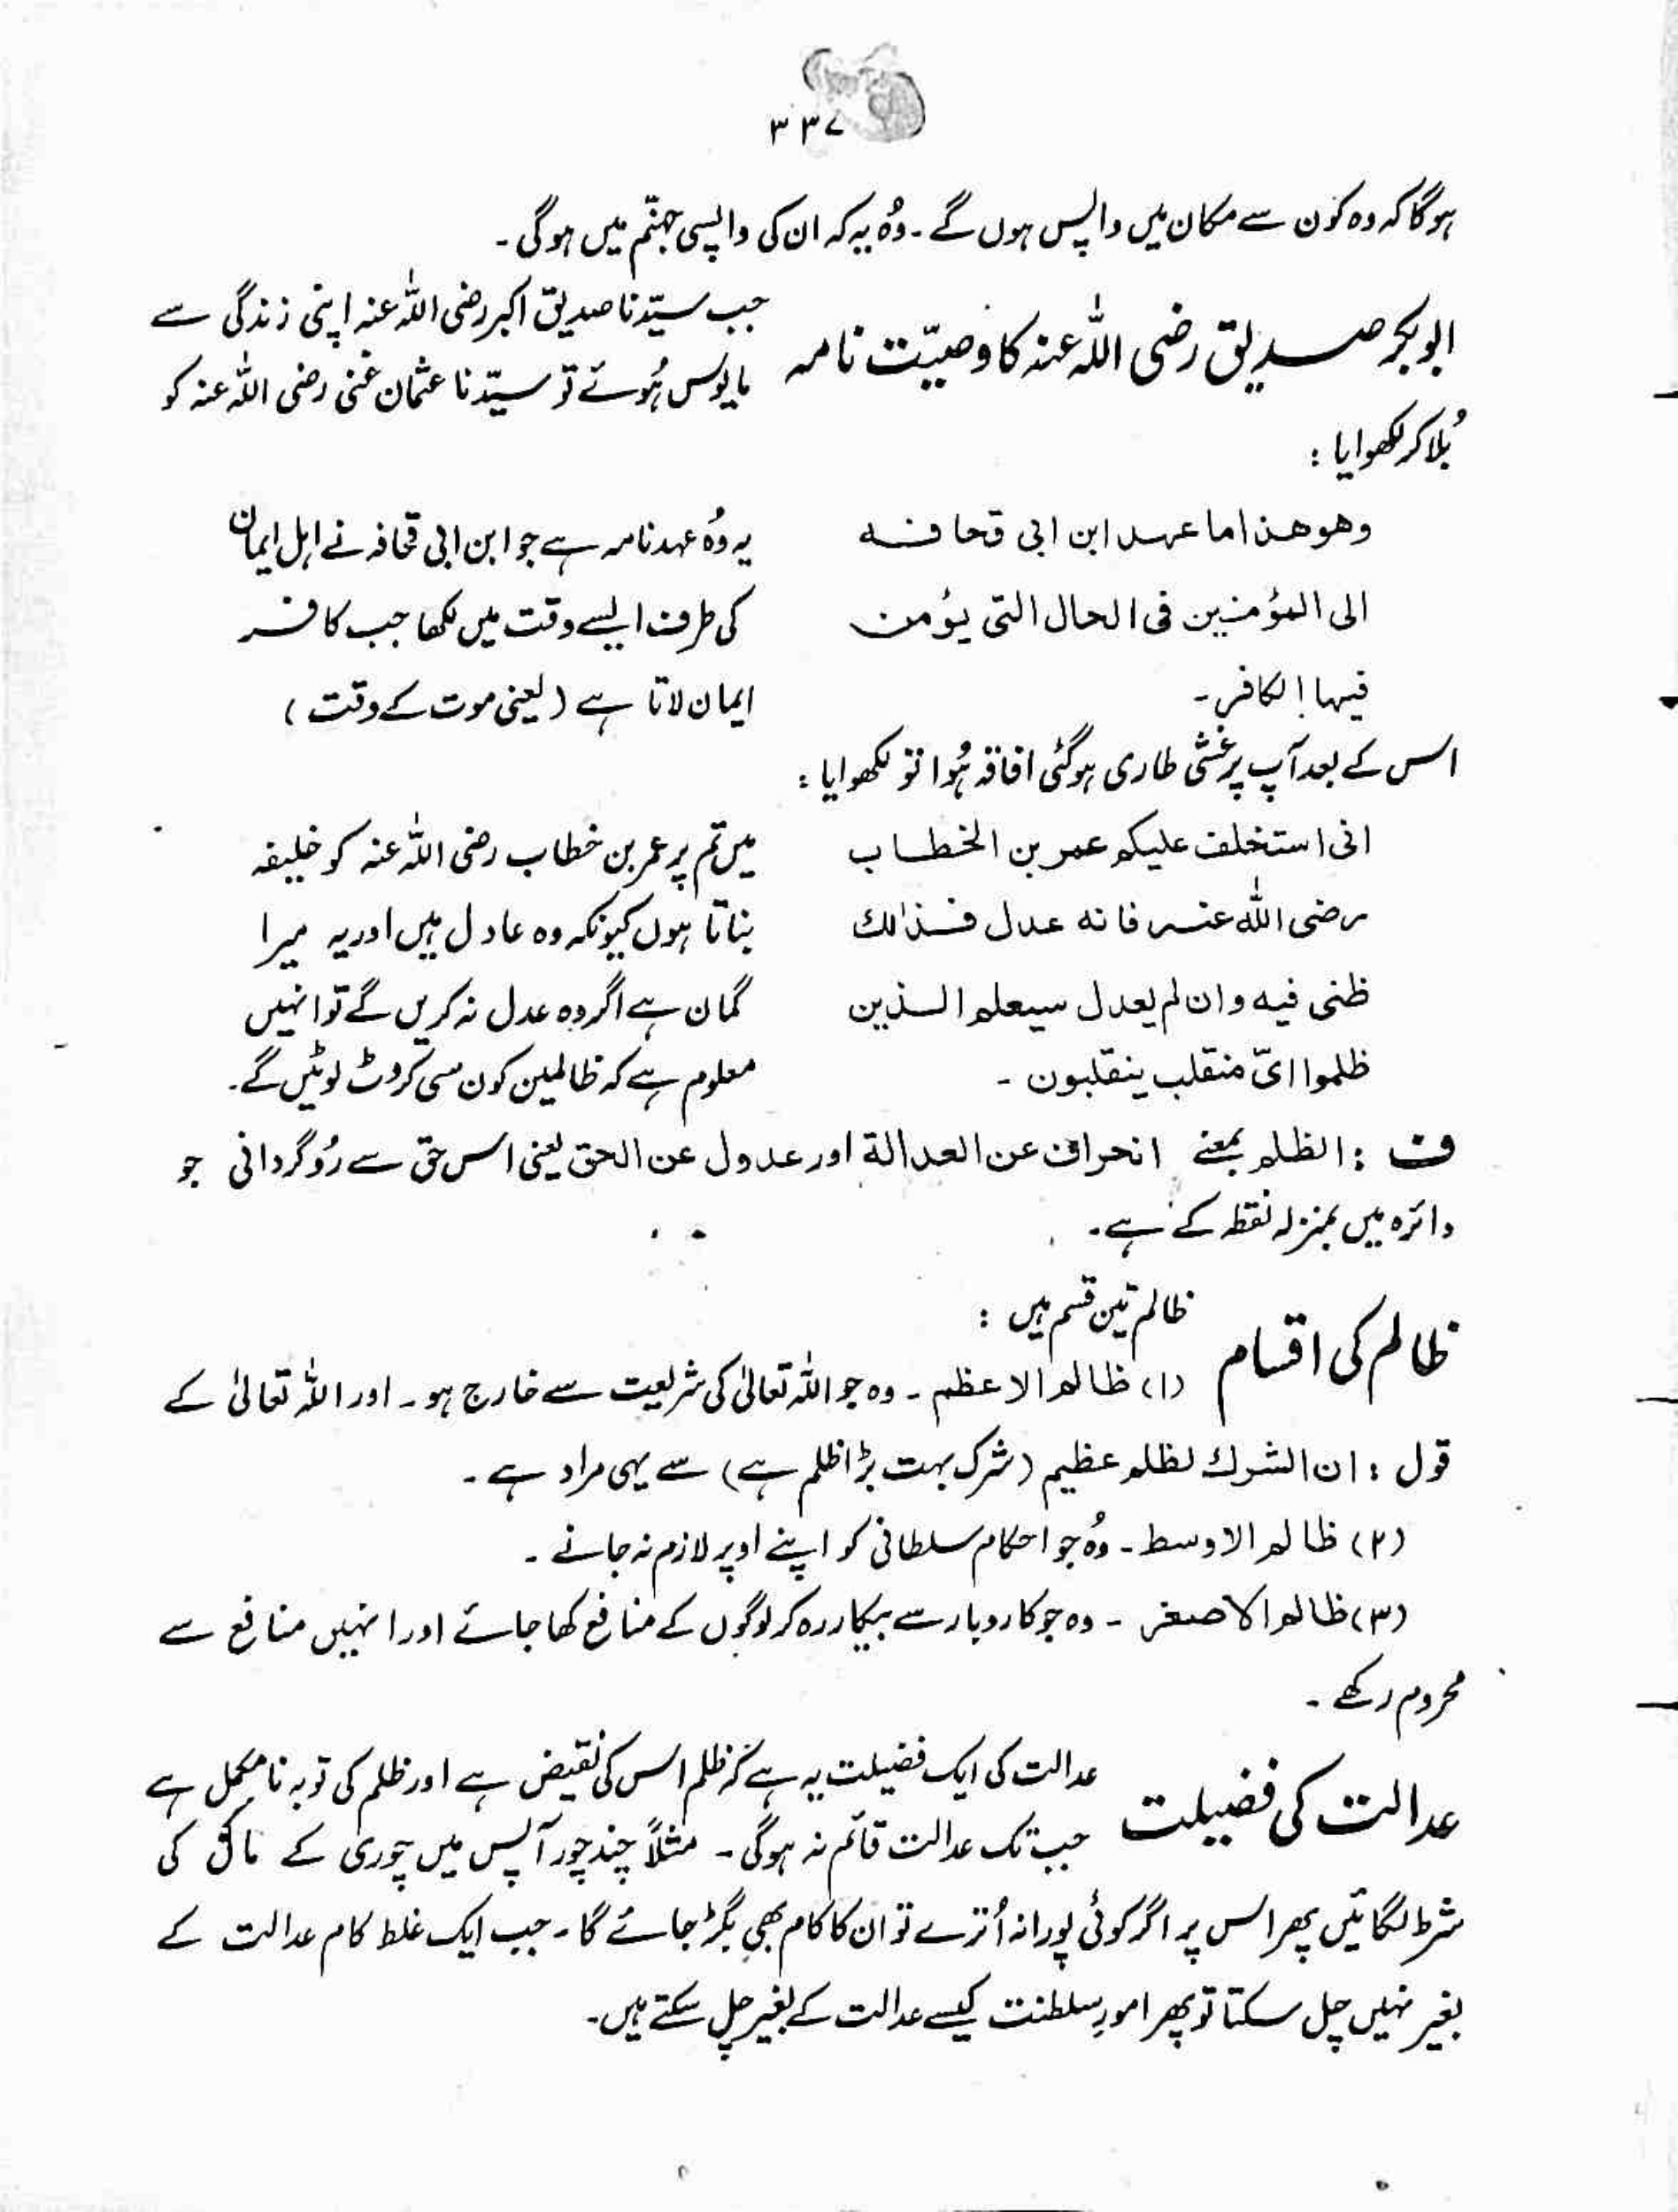 ۳۳۷
ہوگا کہ وہ کون سے مکان میں واپس ہوں گے ۔ وُہ یہ کہ ان کی واپسی جہنّم میں ہوگی ۔
ابوبکر صدیق رضی اللہ عنہ کا وصیّت نامہ
جب سیّدنا صدیق اکبر رضی اللہ عنہ اپنی زندگی سے
مایوس ہُوئے تو سیّدنا عثمان غنی رضی اللہ عنہ کو
بُلا کر لکھوایا :
وھو ھذا ما عہد ابن ابی قحافہ
الی المؤمنین فی الحال التی یؤمن
فیہا الکافر ۔
یہ وُہ عہد نامہ ہے جو ابن ابی قحافہ نے اہل ایمان
کی طرف ایسے وقت میں لکھا جب کافر
ایمان لاتا ہے (یعنی موت کے وقت )
اس کے بعد آپ پر غشی طاری ہوگئی افاقہ ہُوا تو لکھوایا :
انی استخلف علیکم عمر بن الخطاب
رضی اللہ عنہ فانہ عدل فذالك
ظنی فیہ وان لم یعدل سیعلم الذین
ظلموا ایّ منقلب ینقلبون ۔
میں تم پر عمر بن خطاب رضی اللہ عنہ کو خلیفہ
بناتا ہوں کیونکہ وہ عادل ہیں اور یہ میرا
گمان ہے اگر وہ عدل نہ کریں گے تو انہیں
معلوم ہے کہ ظالمین کون سی کروٹ لوٹیں گے ۔
ف : الظلم بمعنے انحراف عن العدالۃ اور عدول عن الحق یعنی اس حق سے رُوگردانی جو
دائرہ میں بمنزلہ نقطہ کے ہے ۔
ظالم کی اقسام
ظالم تین قسم ہیں :
(۱) ظالم الاعظم ۔ وہ جو اللہ تعالیٰ کی شریعت سے خارج ہو ۔ اور اللہ تعالیٰ کے
قول : ان الشرك لظلم عظیم (شرک بہت بڑا ظلم ہے) سے یہی مراد ہے ۔
(۲) ظالم الاوسط ۔ وُہ جو احکام سلطانی کو اپنے اوپر لازم نہ جانے ۔
(۳) ظالم الاصغر ۔ وہ جو کاروبار سے بیکار رہ کر لوگوں کے منافع کھا جائے اور انہیں منافع سے
محروم رکھے ۔
عدالت کی فضیلت
عدالت کی ایک فضیلت یہ ہے کہ ظلم اس کی نقیض ہے اور ظلم کی توبہ نامکمل ہے
جب تک عدالت قائم نہ ہوگی ۔ مثلاً چند چور آپس میں چوری کے کی
شرط لگائیں پھر اس پر اگر کوئی پورا نہ اُترے تو ان کا کام بھی بگڑ جائے گا ۔ جب ایک غلط کام عدالت کے
بغیر نہیں چل سکتا تو پھر امورِ سلطنت کیسے عدالت کے بغیر چل سکتے ہیں ۔